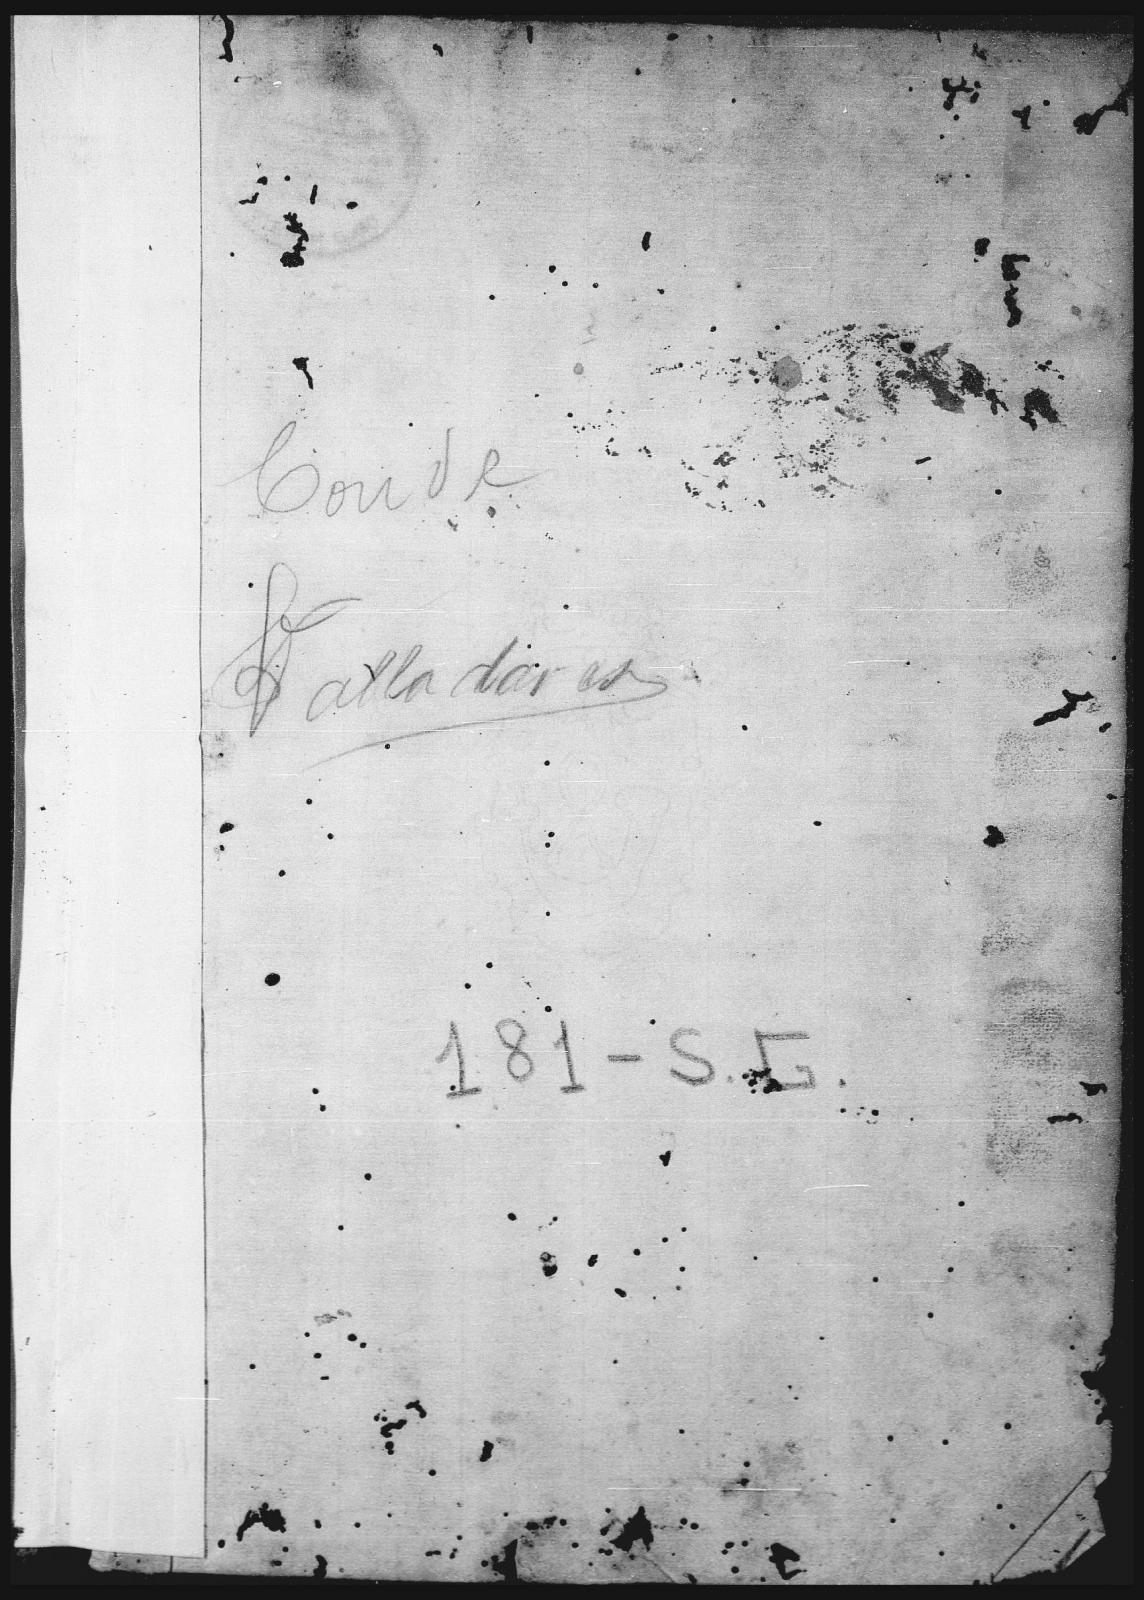 Conde
Valladares
181-S.G.